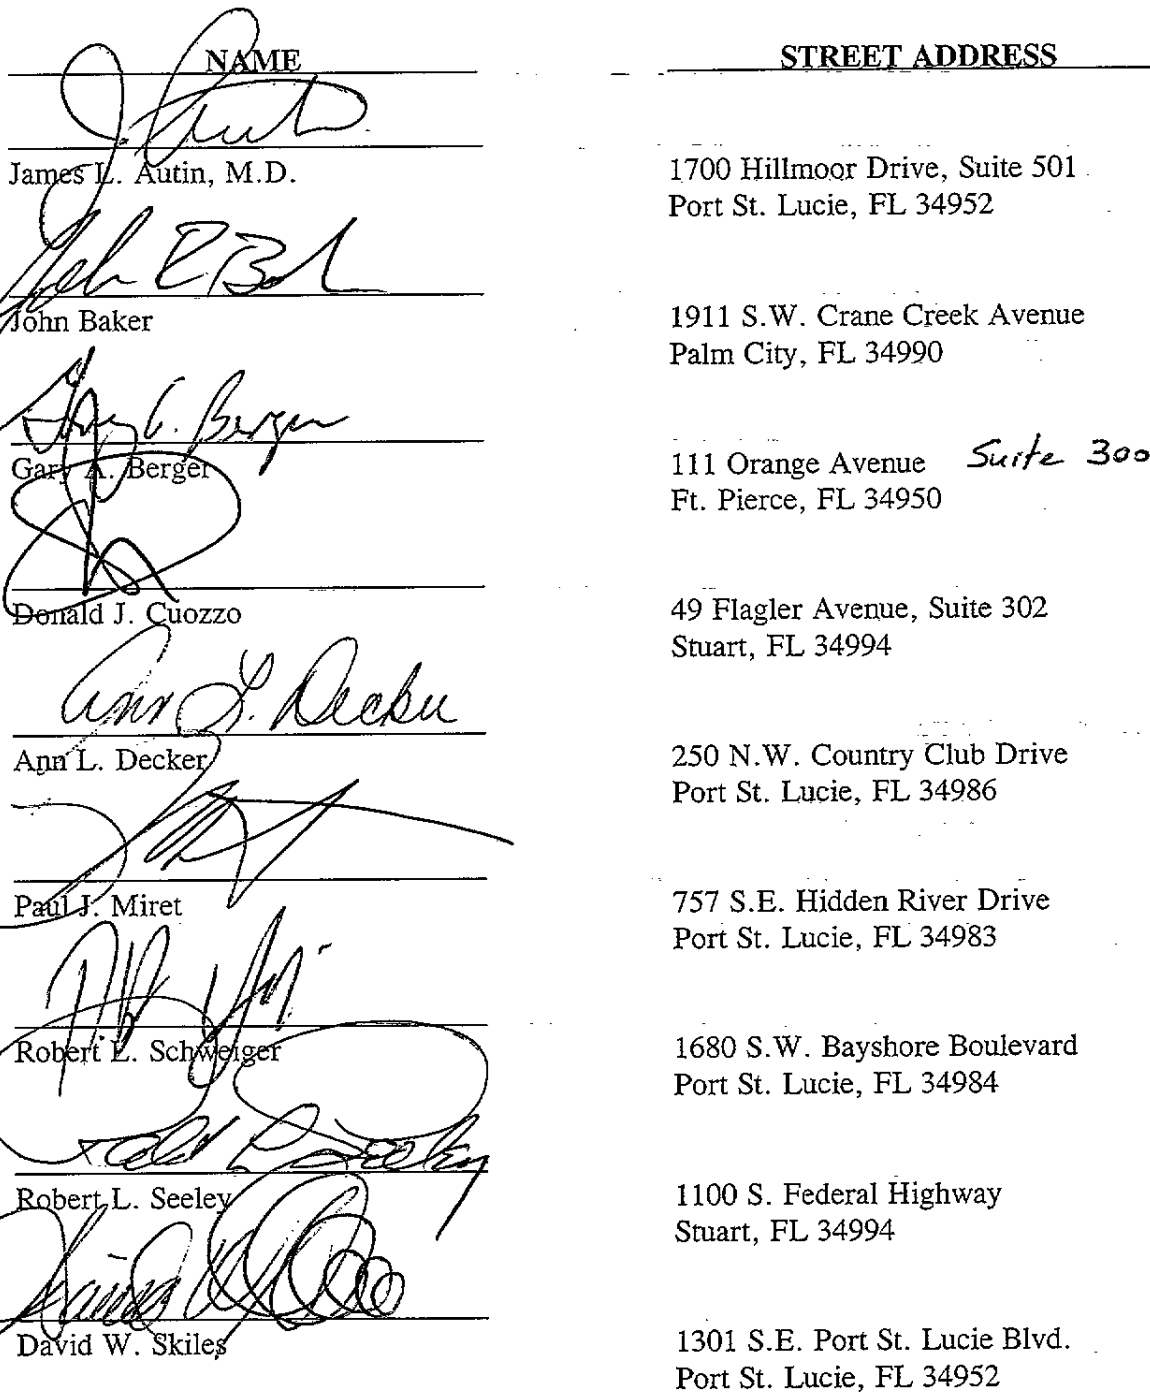 NAME STREET ADDRESS
James L. Autin, M.D. 1700 Hillmoor Drive, Suite 501
Port St. Lucie, FL 34952
John E Baker
John Baker 1911 S.W. Crane Creek Avenue
Palm City, FL 34990
Gary A. Berger
Gary A. Berger 111 Orange Avenue Suite 300
Ft. Pierce, FL 34950
Donald J. Cuozzo 49 Flagler Avenue, Suite 302
Stuart, FL 34994
Ann L. Decker
Ann L. Decker 250 N.W. Country Club Drive
Port St. Lucie, FL 34986
Paul J. Miret 757 S.E. Hidden River Drive
Port St. Lucie, FL 34983
Robert L. Schweiger 1680 S.W. Bayshore Boulevard
Port St. Lucie, FL 34984
Robert L. Seeley 1100 S. Federal Highway
Stuart, FL 34994
David W. Skiles 1301 S.E. Port St. Lucie Blvd.
Port St. Lucie, FL 34952